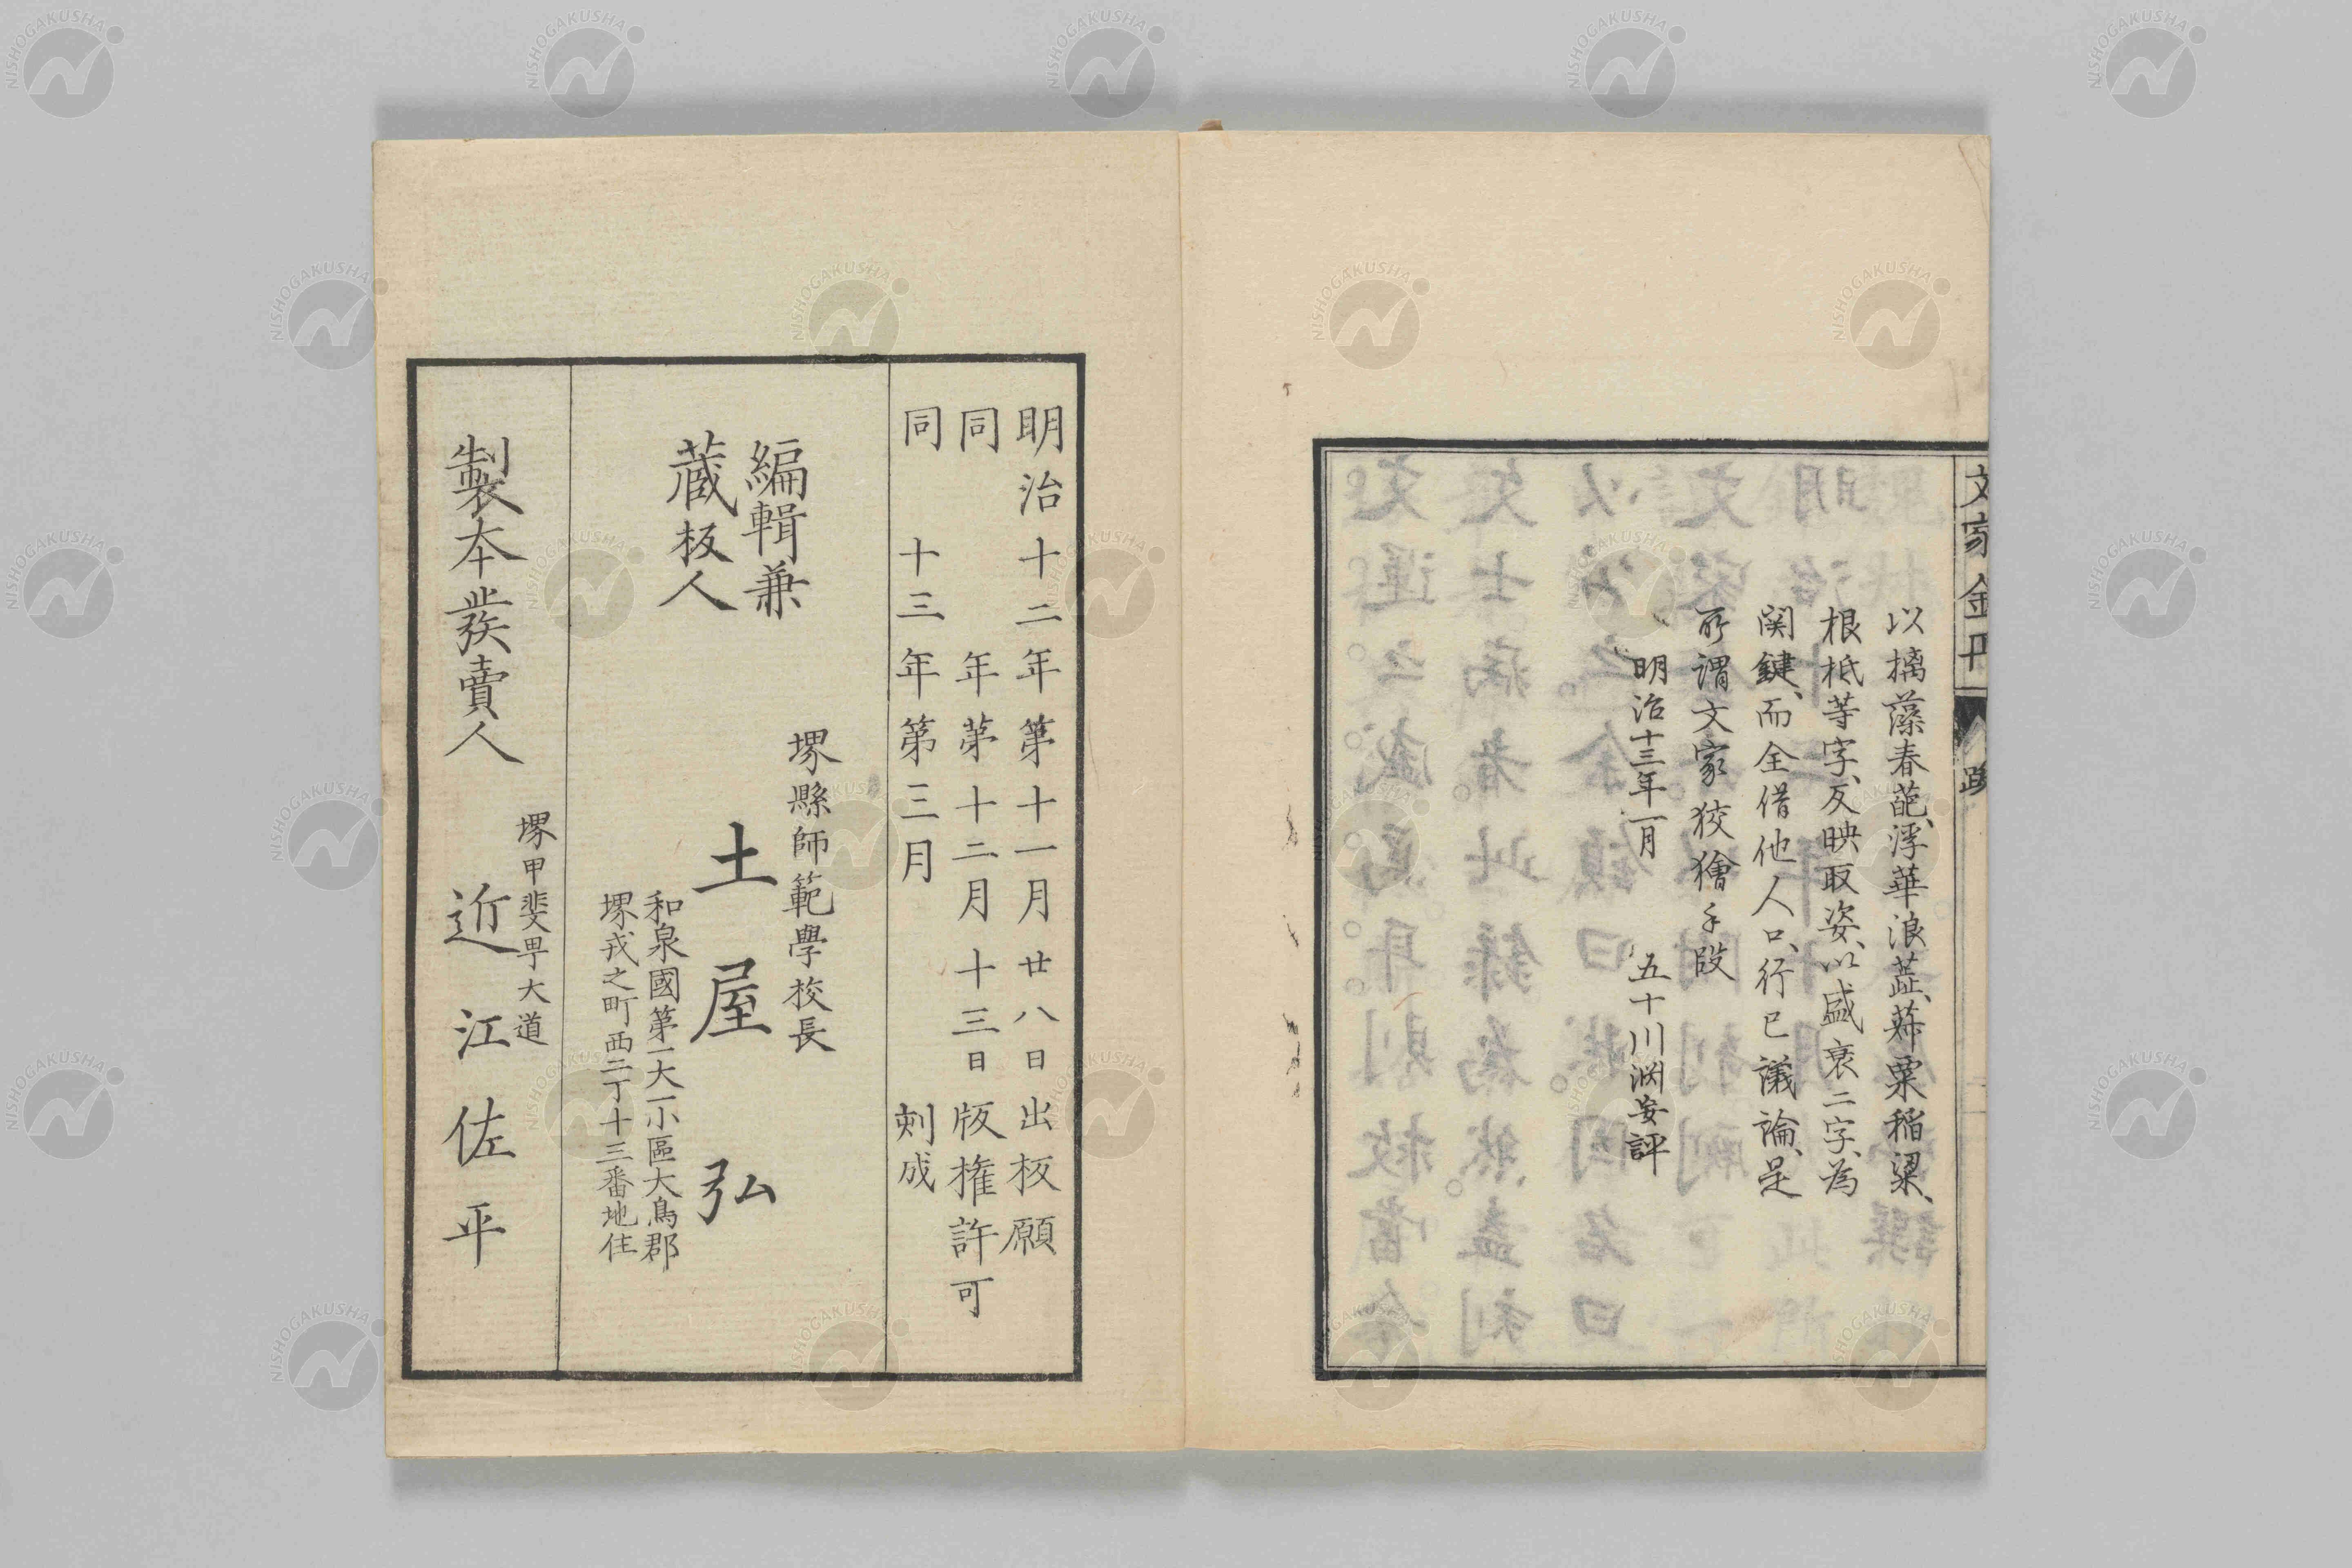 文家金丹
跋
以摛藻春葩、浮華浪蘂、菽粟稲粱、
根柢等字、反映取姿、以盛衰二字、為
関鍵、而全借他人口、行已議論、是
所謂文家狡獪手段
明治十三年一月　五十川淵妄評
明治十二年第十一月廿八日出板願
同　年第十二月十三日版権許可
同　十三年第三月　刻成
編輯兼
蔵板人
堺縣師範學校長
土屋弘
和泉國第一大一小區大鳥郡
堺戎之町西三丁十三番地住
製本發賣人
堺甲斐甼大道
近江佐平
NISHOGAKUSHA